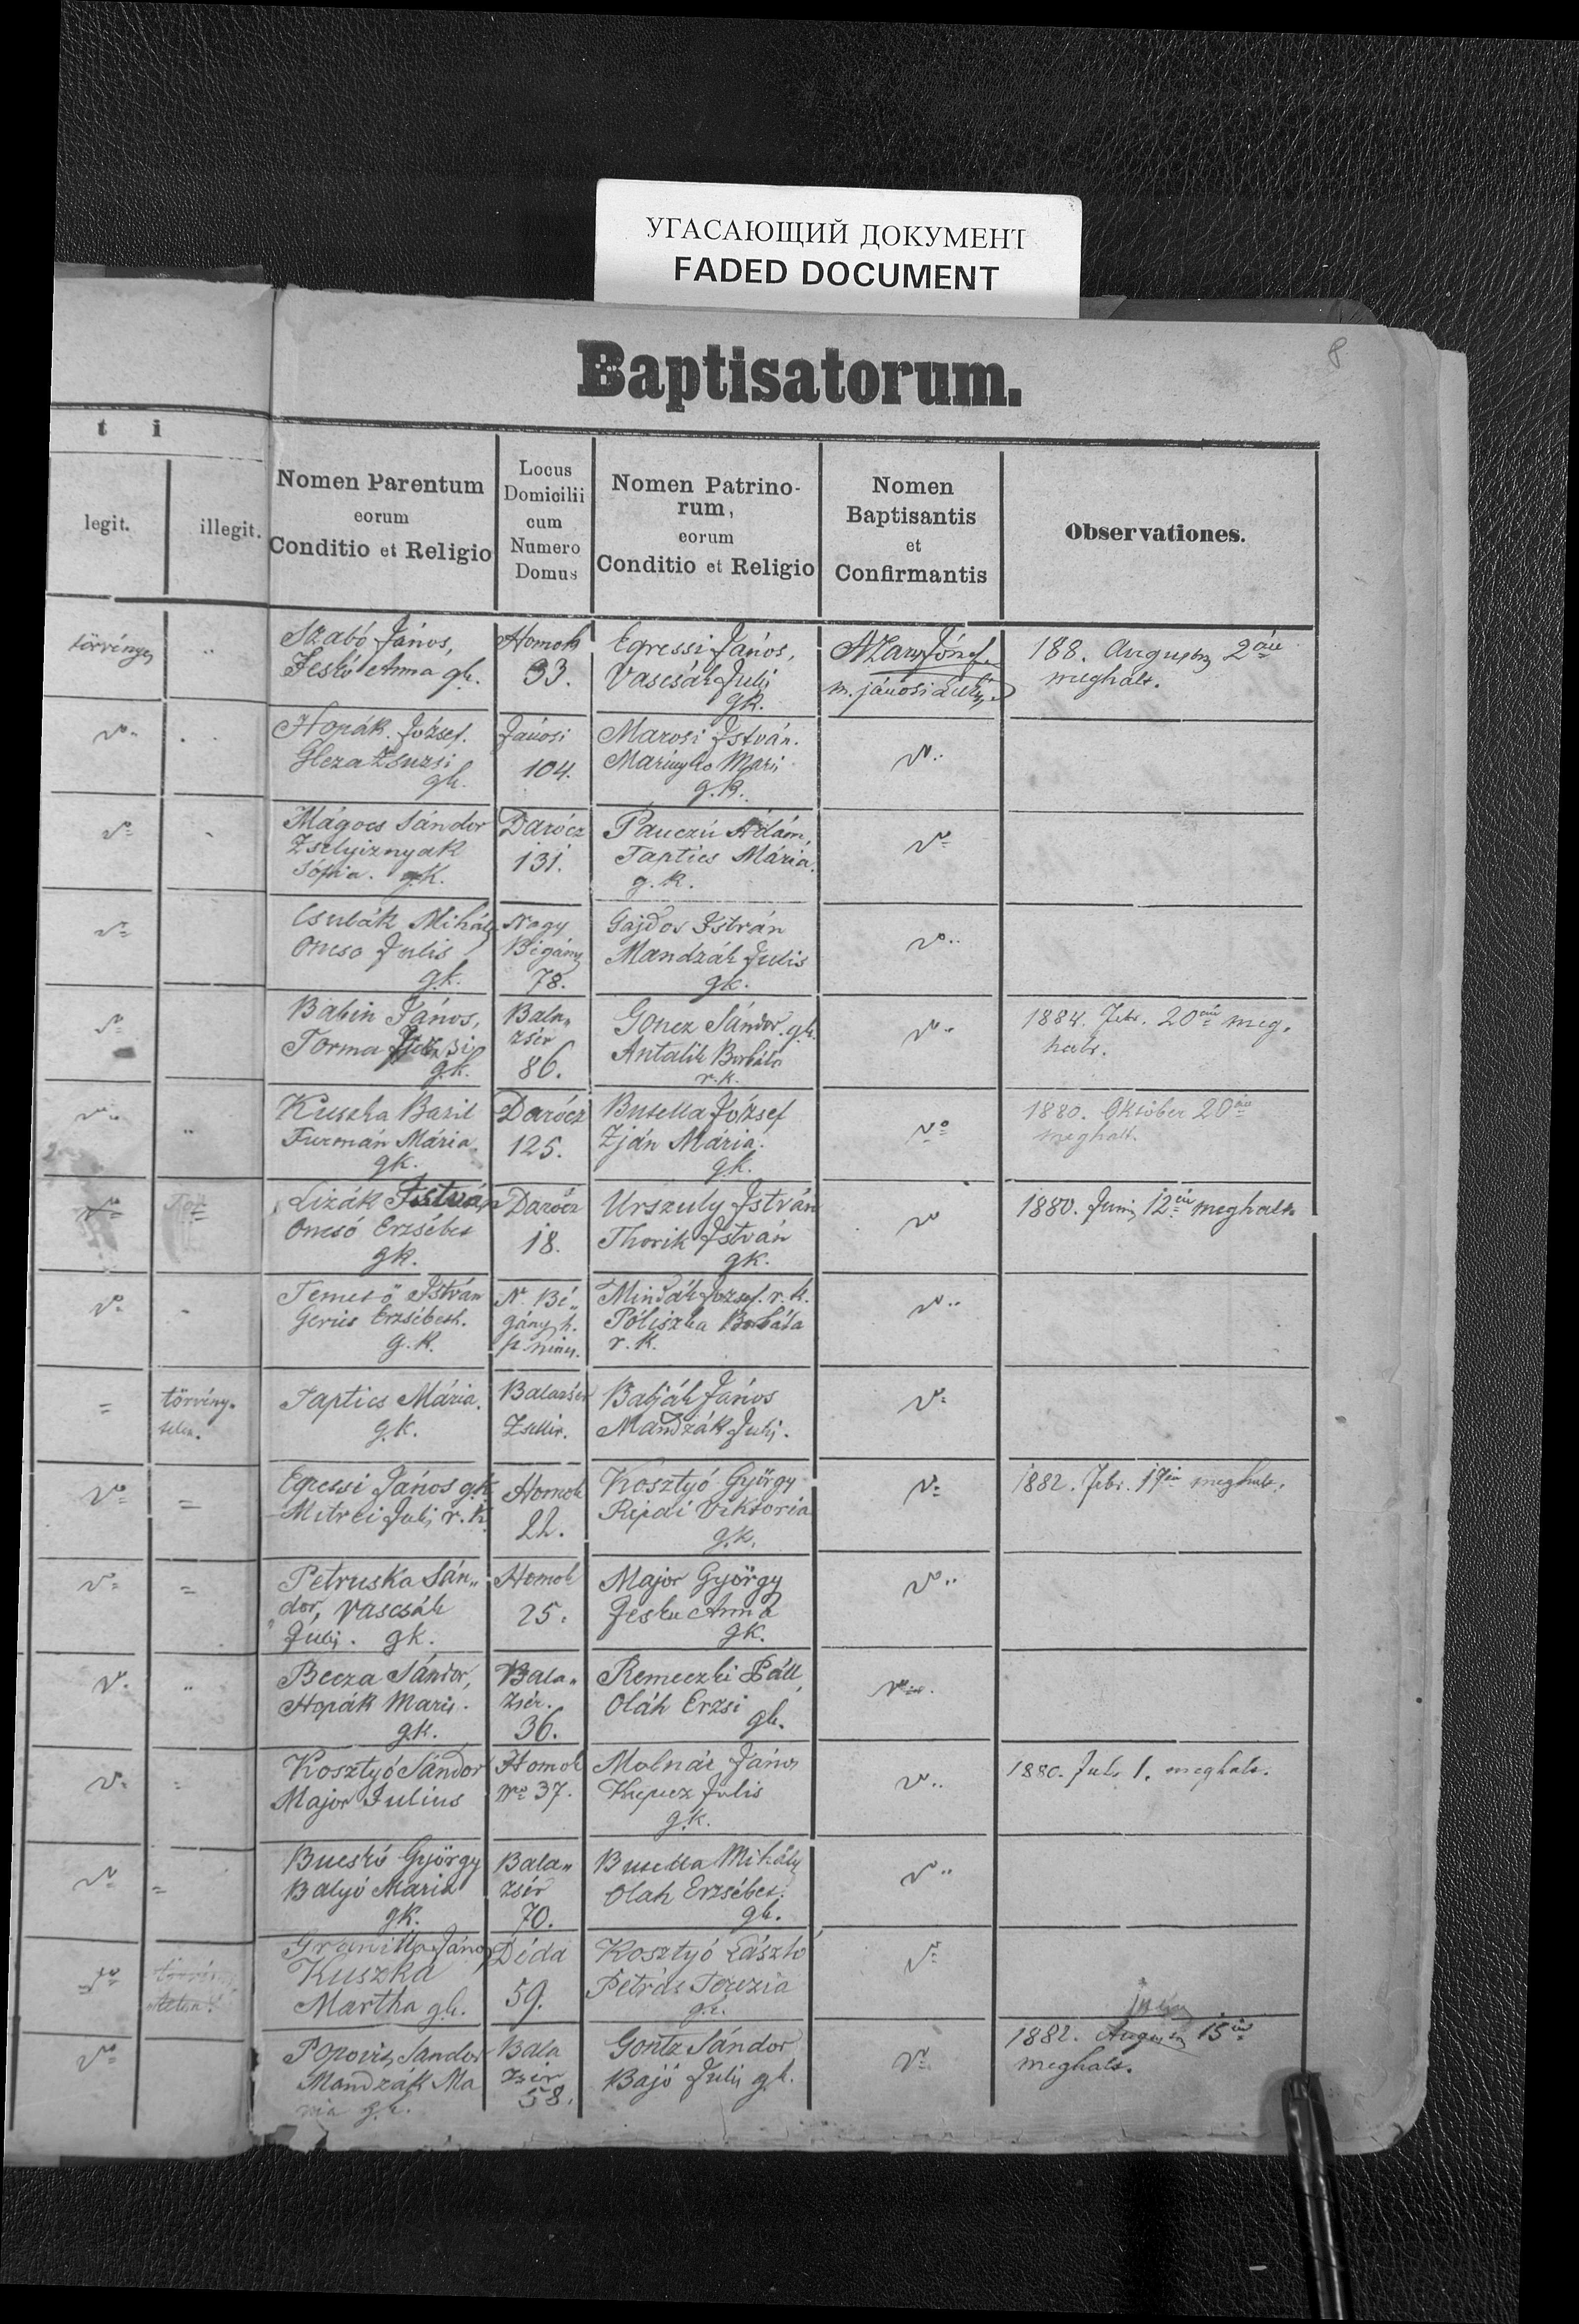 УГАСАЮЩИЙ ДОКУМЕНТ
FADED DOCUMENT
8
Baptisatorum.
t i
legit.
illegit.
Nomen Parentum
eorum
Conditio et Religio
Locus
Domicilii
cum
Numero
Domus
Nomen Patrino-
rum,
eorum
Conditio et Religio
Nomen
Baptisantis
et
Confirmantis
Observationes.
törvényes
Szabó János,
Feskó Anna gk.
Homok
33.
Egressi János,
Vascsák Julis
gk.
József
m. jánosi
188. Augusztus 2án
meghalt.
Hopák József.
Gleza Zsuzsi
gk.
Jánosi
104.
Marosi István.
Maris
g.k.
Mágocs Sándor
Zselyiznyak
Sófia. g.k.
Darócz
131.
Pauczú Ádám,
Taptics Mária.
g.k.
Csubák Mihály
Oncso Julis
gk.
Nagy
Bégány
78.
Gajdos István
Mandzák Julis
gk.
Babin János,
Torma
gk.
Bala„
zsér
86.
Goncz Sándor. gk.
Antalik Borbála
r.k.
1884. Febr. 20án meg.
halt.
Kuszka Bazil
Furmán Mária.
gk.
Darócz
125.
Busella József
Zján Mária.
gk.
1880. Oktober 20án
meghalt.
Lizák István
Oncsó Erzsébet
gk.
Darócz
18.
Urszuly István
Thorik István
gk.
1880. Junis 12én meghalt.
Temető István
Gerics Erzsébeth.
g.k.
N. Bé„
gány h.
Mindák József. r.k.
Póliszka Borbála
r.k.
törvény.
telen.
Taptics Mária.
gk.
Balazsér
Zsellér.
Babják János
Mandzák Julis.
Egressi János gk
Mitrei Julis r.k.
Homok
22.
Kosztyó György
Ripai Viktoria
g.k.
1882. Febr. 17én meghalt.
Petruska Sán„
dor, Vascsák
Julis. gk.
Homok
25.
Major György
Fesku Anna
gk.
Becza Sándor,
Hopák Maris.
gk.
Bala„
zsér.
36.
Remeczki Páll,
Oláh Erzsi
gk.
Kosztyó Sándor
Major Julius
Homok
No 37.
Molnár János
Julis
g.k.
1880. Julis 1. meghalt.
Bucskó György
Balyó Maria
gk.
Bala„
zsér
70.
Busella Mihály
Olah Erzsébet.
gk.
János
Kuszka
Martha gk.
Déda
59.
Kosztyó László
Petrás Terezia
gk.
Popovis Sandor
Mandzák Ma
ria g.k.
Bala
zsér
58.
Gontz Sándor
Bajó Julis gk.
1882. Augusz 15én
meghalt.